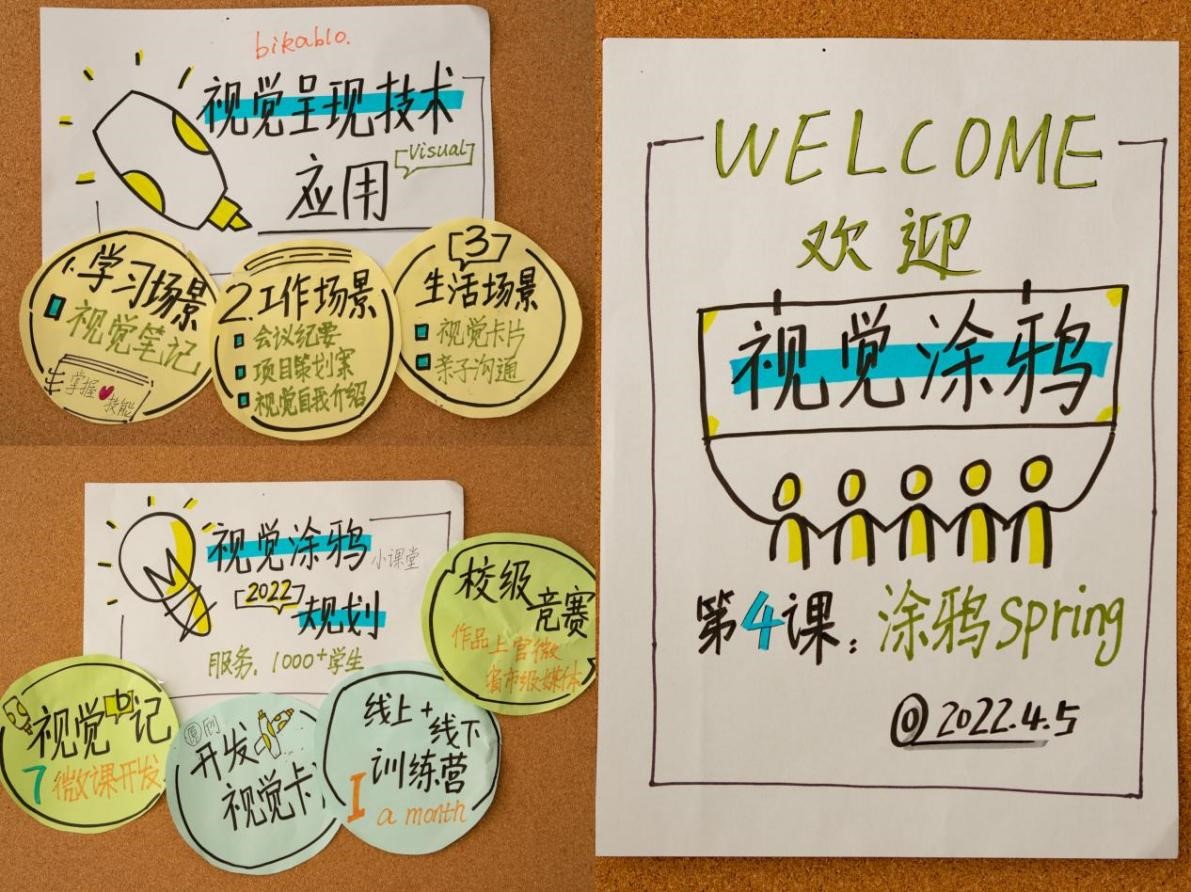 bikablo.
视觉呈现技术
Visual
应用
1.学习场景
视觉笔记
掌握
技能
2.工作场景
会议纪要
项目策划案
视觉自我介绍
3
生活场景
视觉卡片
亲子沟通
视觉涂鸦小课堂
2022
规划
服务,1000+学生
校级
竞赛
作品上官微
市级媒体
视觉b记
7微课开发
开发
视觉卡
线上+
线下
训练营
I a month
WELCOME
欢迎
视觉涂鸦
第4课:涂鸦spring
@2022.4.5